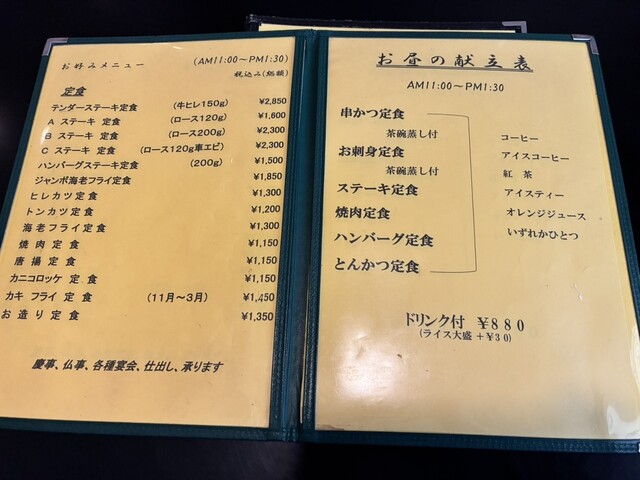 お好みメニュー (AM11:00～PM1:30)
税込み(総額)
定食
テンダーステーキ定食 (牛ヒレ150g) ¥2,850
A ステーキ 定食 (ロース120g) ¥1,600
B ステーキ 定食 (ロース200g) ¥2,300
C ステーキ 定食 (ロース120g車エビ) ¥2,300
ハンバーグステーキ定食 (200g) ¥1,500
ジャンボ海老フライ定食 ¥1,850
ヒレカツ 定食 ¥1,300
トンカツ 定食 ¥1,200
海老フライ定食 ¥1,300
焼肉 定食 ¥1,150
唐揚 定食 ¥1,150
カニコロッケ 定食 ¥1,150
カキ フライ 定食 (11月～3月) ¥1,450
お造り 定食 ¥1,350
慶事、仏事、各種宴会、仕出し、承ります
お昼の献立表
AM11:00～PM1:30
串かつ定食
茶碗蒸し付
お刺身定食
茶碗蒸し付
ステーキ定食
焼肉定食
ハンバーグ定食
とんかつ定食
コーヒー
アイスコーヒー
紅茶
アイスティー
オレンジジュース
いずれかひとつ
ドリンク付 ¥880
(ライス大盛 +¥30)